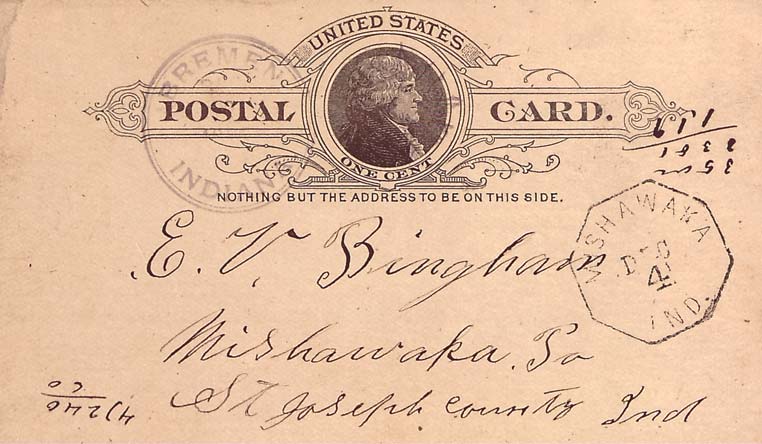 UNITED STATES
POSTAL CARD.
ONE CENT
NOTHING BUT THE ADDRESS TO BE ON THIS SIDE.
BREMEN
INDIANA
MISHAWAKA
DEC
4
IND.
E. V. Bingham
Mishawaka. Po
St Joseph county Ind
4)240
60
3500
2381
119